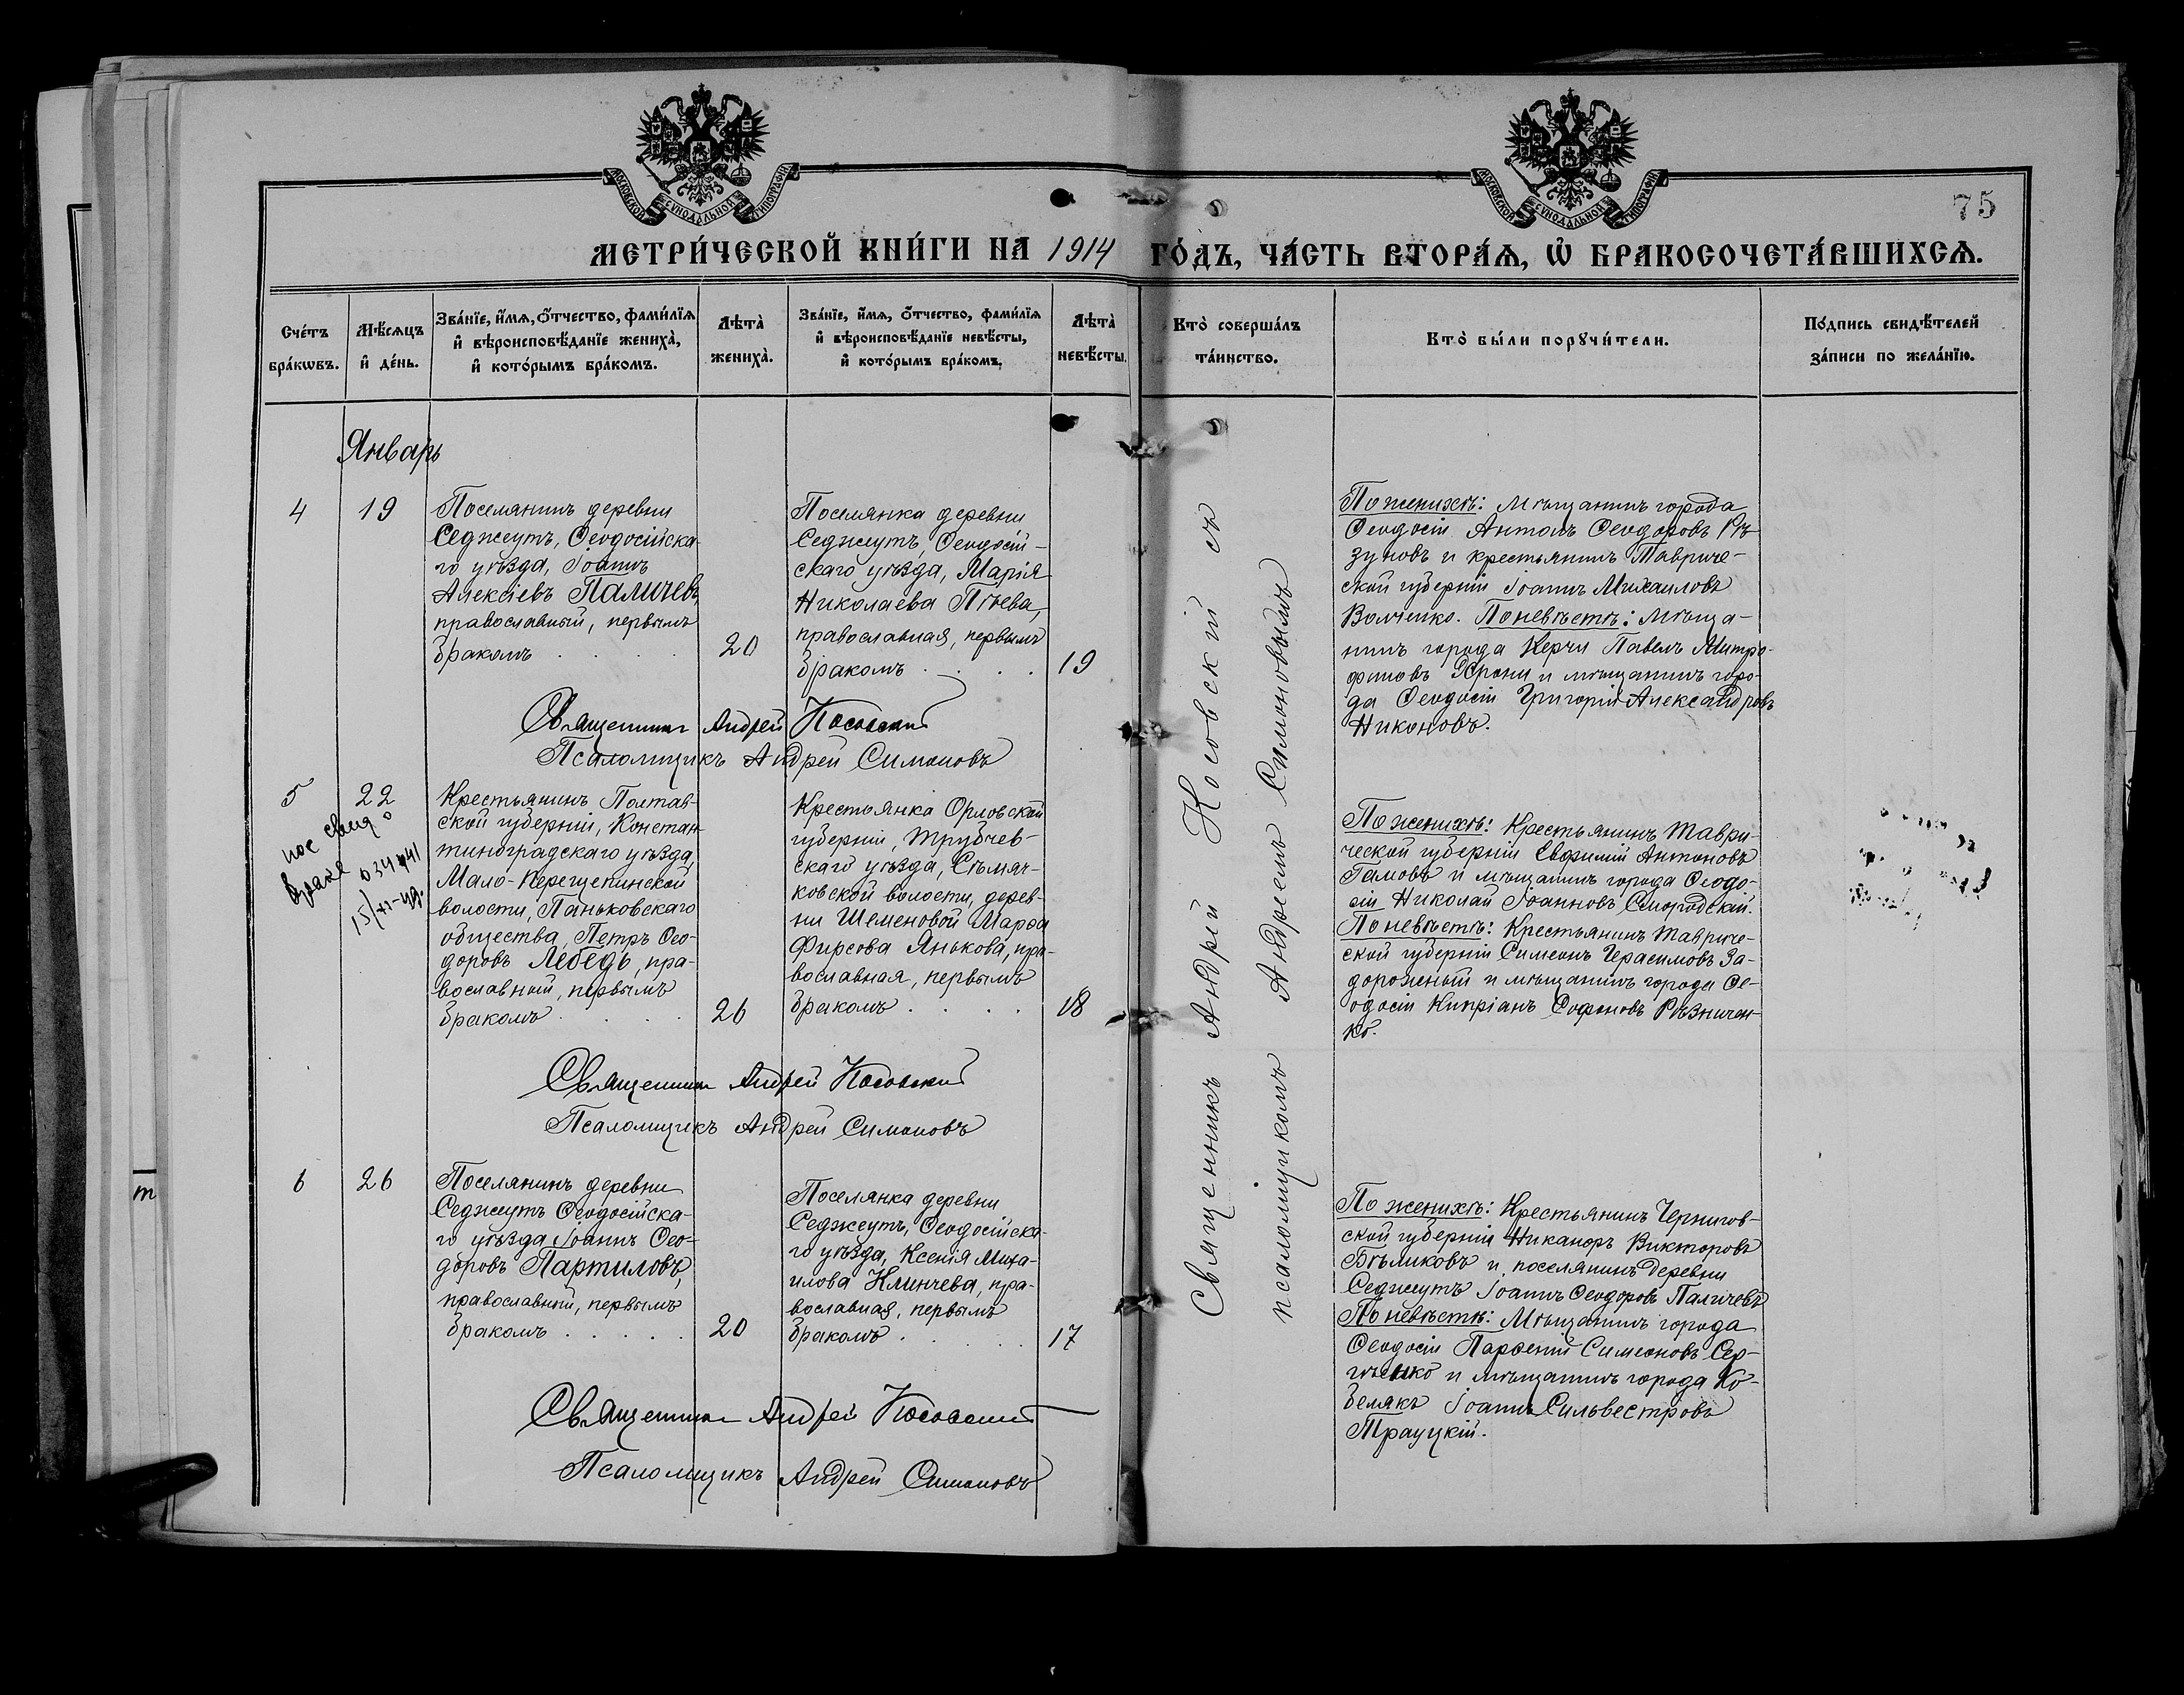 МОСКОВСКОЙ СѴНОДАЛЬНОЙ ТИПОГРАФІИ
МОСКОВСКОЙ СѴНОДАЛЬНОЙ ТИПОГРАФІИ
75
МЕТРИ́ЧЕСКОЙ КНИ́ГИ НА 1914 ГО́ДЪ, ЧА́СТЬ ВТОРА́Ѧ, Ѽ БРАКОСОЧЕТА́ВШИХСѦ.
Сче́тъ
бра́кѡвъ.
Мѣ́сѧцъ
и҆ де́нь.
Зва́нїе, и҆́мѧ, ѻ҆́тчество, фами́лїѧ
и҆ вѣроисповѣ́данїе жениха̀,
и҆ кото́рымъ бра́комъ.
Лѣта̀
жениха̀.
Зва́нїе, и҆́мѧ, ѻ҆́тчество, фами́лїѧ
и҆ вѣроисповѣ́данїе невѣ́сты,
и҆ кото́рымъ бра́комъ.
Лѣта̀
невѣ́сты.
Кто̀ соверша́лъ
та́инство.
Кто̀ бы́ли порꙋчи́тели.
По́дпись свидѣ́телей
за́писи по жела́нїю.
Январь
4
19
Поселянинъ деревни
Седжеутъ, Ѳеодосійска-
го уѣзда, Іоаннъ
Алексіевъ Паличевъ,
православный, первымъ
бракомъ . . . .
20
Поселянка деревни
Седжеутъ, Ѳеодосій-
скаго уѣзда, Марія
Николаева Пѣева,
православная, первымъ
бракомъ . . . .
19
Священникъ Андрей Косовскій
Псаломщикъ Андрей Симоновъ
По женихѣ: Мѣщанинъ города
Ѳеодосіи Антонъ Ѳеодоровъ Рѣ-
зуновъ и крестьянинъ Тавриче-
ской губерніи Іоаннъ Михаиловъ
Волченко. По невѣстѣ: мѣща-
нинъ города Керчи Павелъ Митро-
фановъ и мѣщанинъ горо-
да Ѳеодосіи Григорій Александровъ
Никоновъ.
5
22
брак
15/XI-
Крестьянинъ Полтав-
ской губерніи, Констан-
тиноградскаго уѣзда,
Мало-Перещепинской
волости, Паньковскаго
общества, Петръ Ѳео-
доровъ Лебедь, пра-
вославный, первымъ
бракомъ . . . .
26
Крестьянка Орловской
губерніи, Трубчев-
скаго уѣзда, Сѣмяч-
ковской волости, дерев-
ни Шеменовой Марѳа
Фирсова Янькова, пра-
вославная, первымъ
бракомъ . . . .
18
Священникъ Андрей Косовскій
Псаломщикъ Андрей Симоновъ
По женихѣ: Крестьянинъ Таври-
ческой губерніи Евфимій Антоновъ
Гамовъ и мѣщанинъ города Ѳеодо-
сіи Николай Іоанновъ Смородскій.
По невѣстѣ: Крестьянинъ Тавриче-
ской губерніи Симеонъ Герасимовъ За-
дорожный и мѣщанинъ города Ѳе-
одосіи Кипріанъ Софоновъ Рѣзничен-
ко.
6
26
Поселянинъ деревни
Седжеутъ Ѳеодосійска-
го уѣзда Іоаннъ Ѳео-
доровъ Партиловъ,
православный, первымъ
бракомъ . . . . .
20
Поселянка деревни
Седжеутъ, Ѳеодосійска-
го уѣзда, Ксенія Миха-
илова Клинчева, пра-
вославная, первымъ
бракомъ . . . .
17
Священникъ Андрей Косовскій
Псаломщикъ Андрей Симоновъ
По женихѣ: Крестьянинъ Чернигов-
ской губерніи Никаноръ Викторовъ
Бѣликовъ и поселянинъ деревни
Седжеутъ Іоаннъ Ѳеодоровъ Паличевъ
По невѣстѣ: Мѣщанинъ города
Ѳеодосіи Парѳеній Симеоновъ Сер-
гѣенко и мѣщанинъ города Ко-
белякъ Іоаннъ Сильвестровъ
Трауцкій.
Священникъ Андрей Косовскій съ
псаломщикомъ Андреемъ Симоновымъ